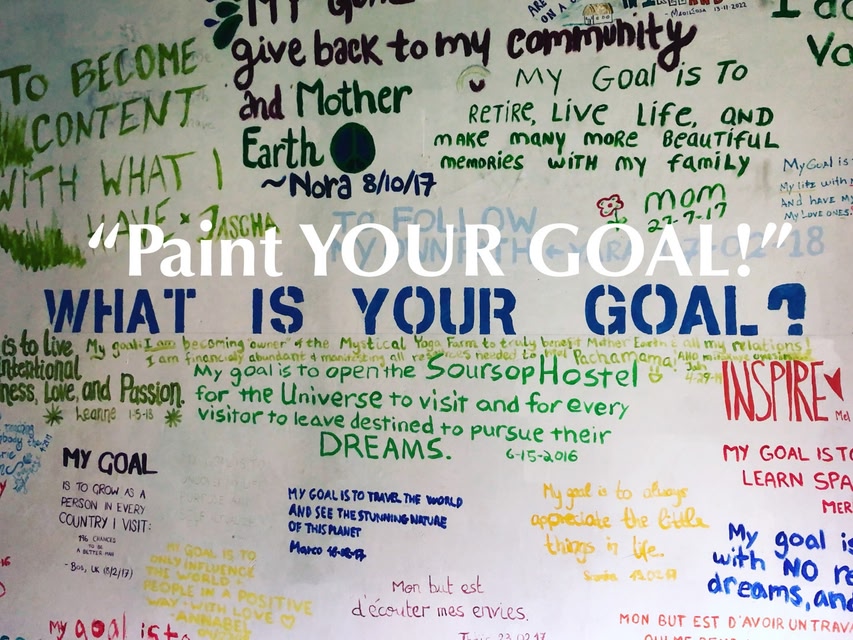 My Goal
give back to my community
and Mother
Earth
~Nora 8/10/17
TO BECOME
CONTENT
WITH WHAT I
HAVE * JASCHA
My Goal is To
RETIRE, Live life, AND
make many more Beautiful
memories with my family
mom
27-7-17
My Goal is
My life with
And have my
My loves ones
I
ARE
ON A
13-11-2022
TO FOLLOW
MY OWN PATH
“Paint YOUR GOAL!”
WHAT IS YOUR GOAL?
is to live
Intentional
ness, Love, and Passion.
Leanne 1-5-18
My goal: I am becoming "owner" of the Mystical Yoga Farm to truly benefit Mother Earth & all my relations!
I am financially abundant & manifesting all resources needed to Pachamama!
My goal is to open the Soursop Hostel
for the Universe to visit and for every
visitor to leave destined to pursue their
DREAMS.
6-15-2016
INSPIRE
Mel
MY GOAL IS T
LEARN SPA
MER
MY GOAL
IS TO GROW AS A
PERSON IN EVERY
COUNTRY I VISIT:
1% CHANCED
TO BE
A BETTER MAN
- Bas, UK (5/2/17)
MY GOAL IS TO TRAVEL THE WORLD
AND SEE THE STUNNING NATURE
OF THIS PLANET
Marco 18-18-17
My goal is to always
appreciate the little
things in life.
My goal is
with NO re
dreams, and
MY GOAL IS TO
ONLY INFLUENCE
THE WORLD +
PEOPLE IN A POSITIVE
WAY - WITH LOVE ♡
- ANNABEL
Mon but est
d'écouter mes envies.
23.02.17
MON BUT EST D'AVOIR UN TRAVA
My goal is to